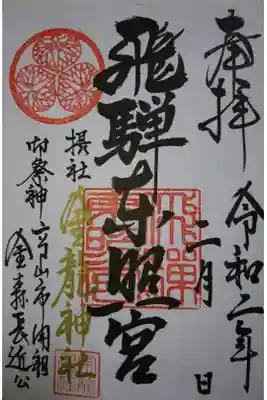 奉拝
令和二年
二月 日
飛騨東照宮
摂社 金龍神社
御祭神 高山市開祖
金森長近公